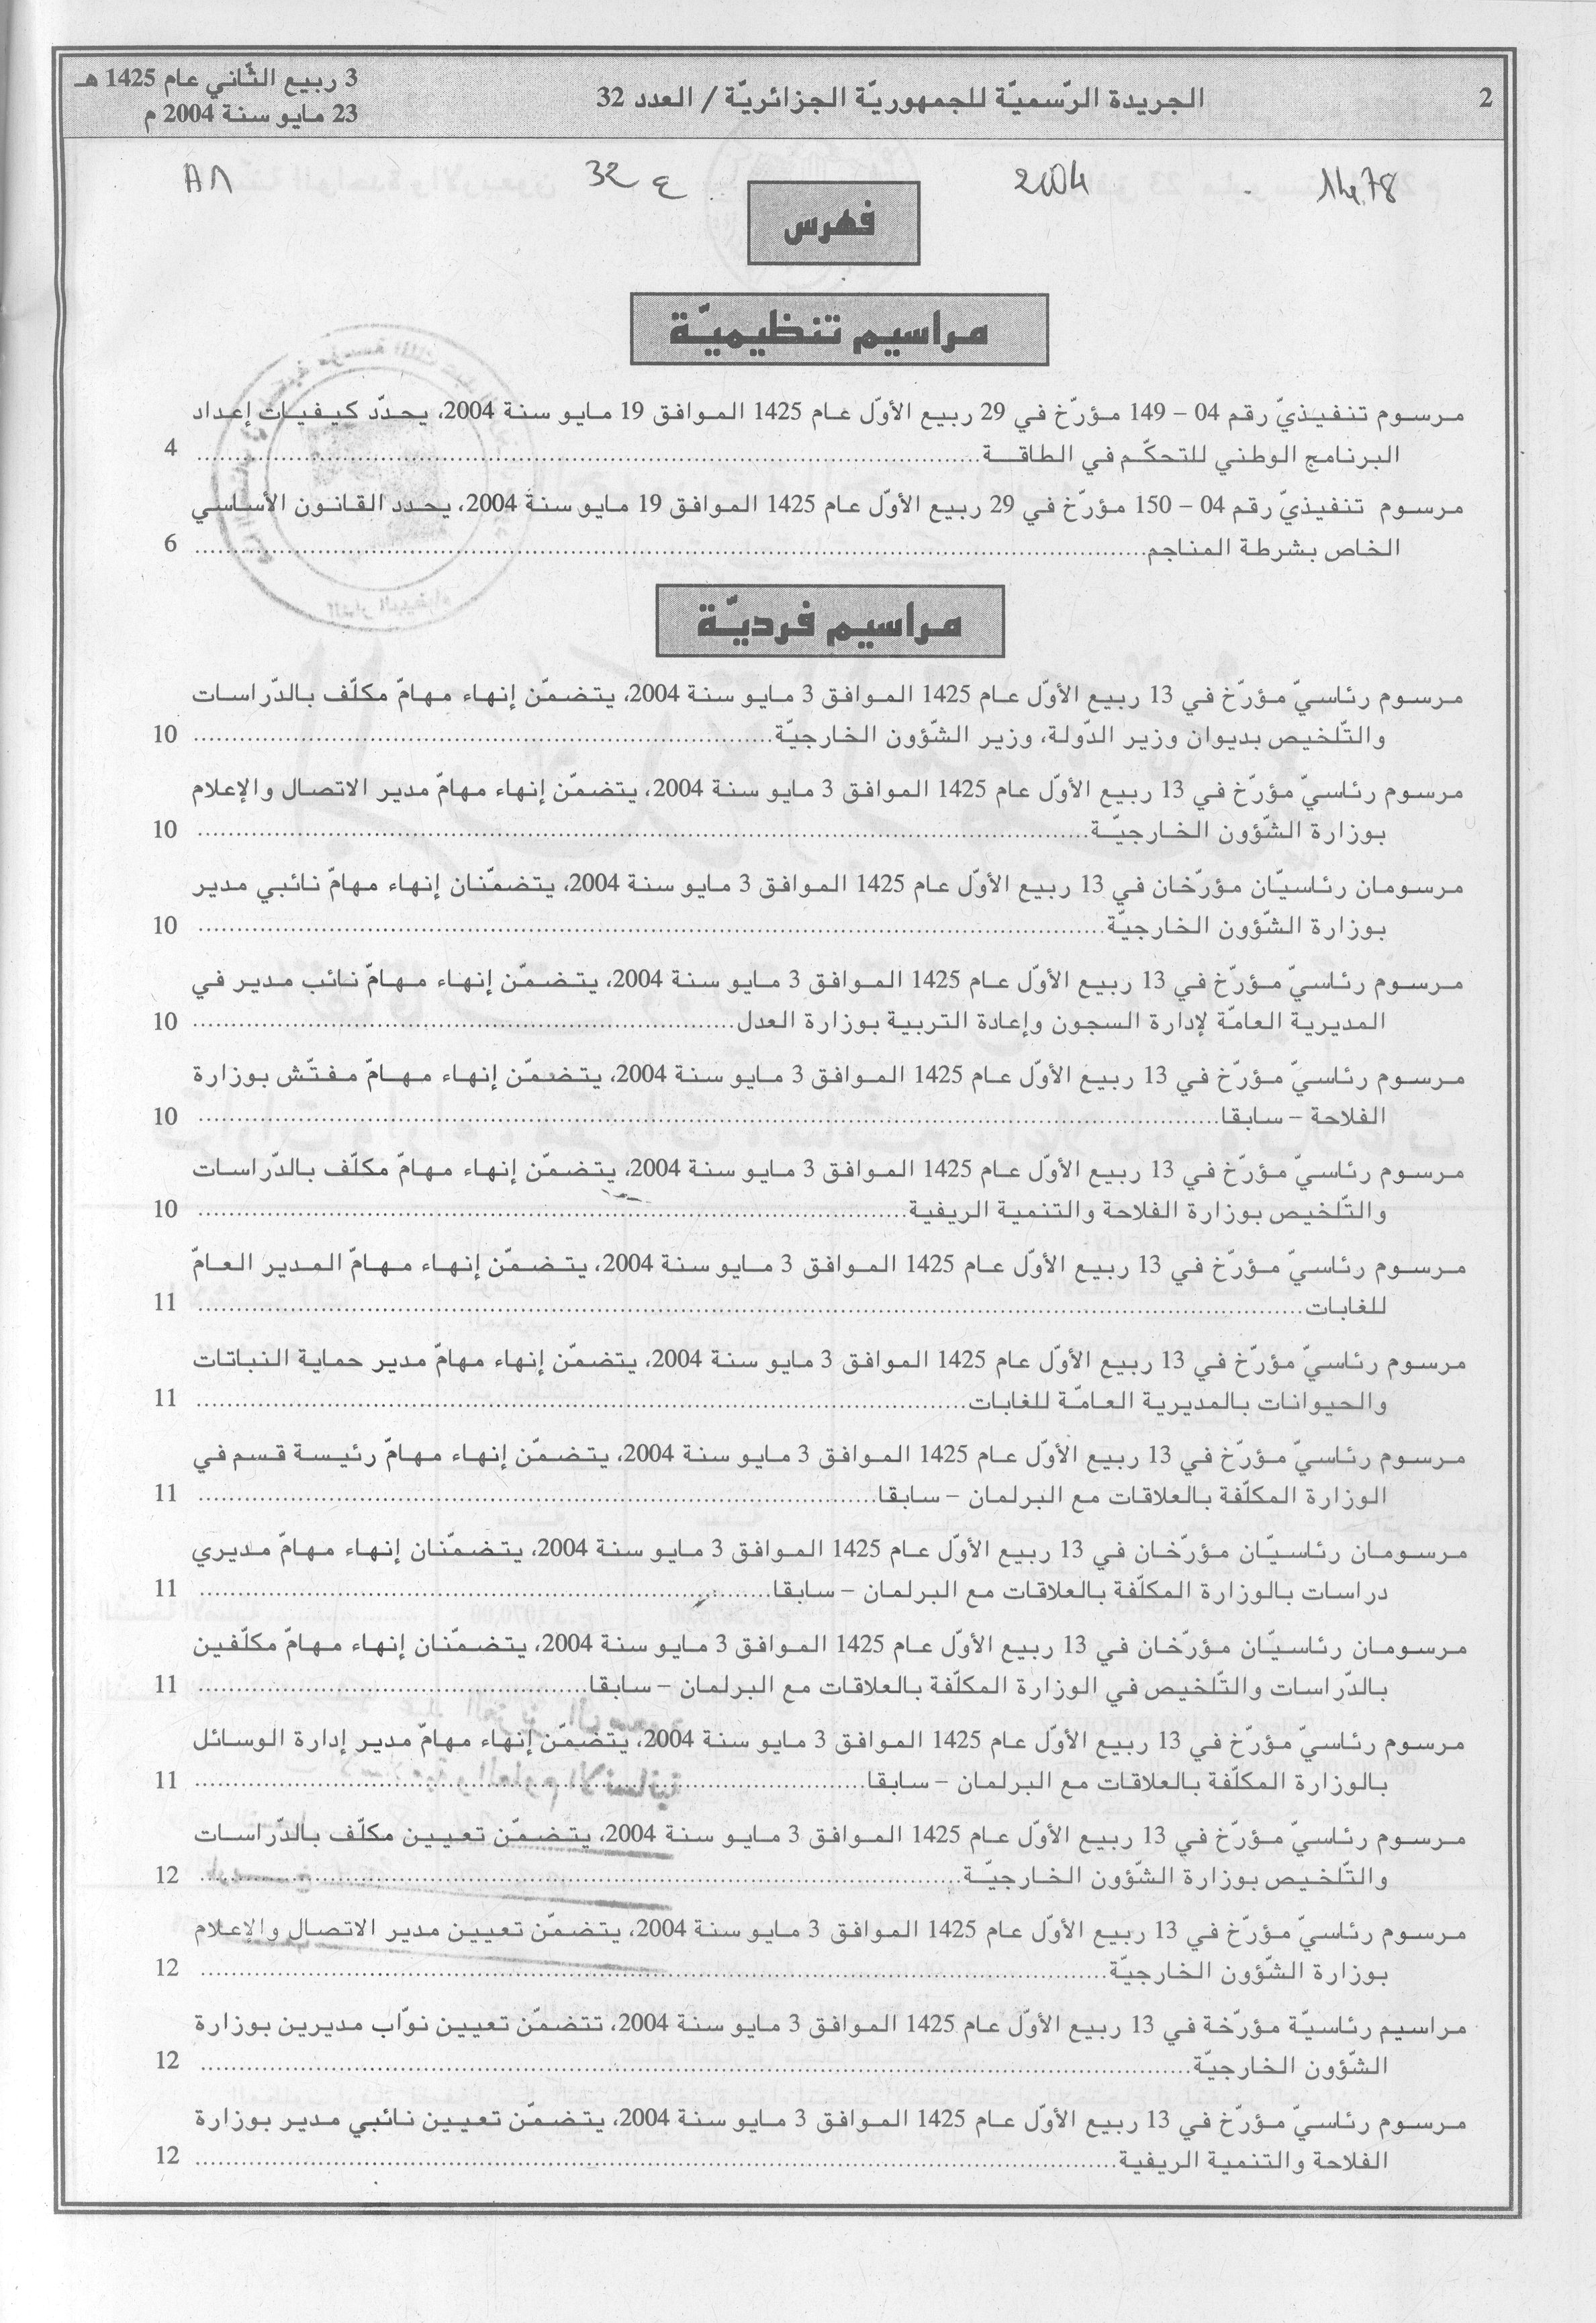 2
الجريدة الرّسميّة للجمهوريّة الجزائريّة / العدد 32
3 ربيع الثّاني عام 1425 هـ
23 مايو سنة 2004 م
2004
32 ع
فهرس
مراسيم تنظيميّة
مرسوم تنفيذيّ رقم 04 – 149 مؤرّخ في 29 ربيع الأوّل عام 1425 الموافق 19 مايو سنة 2004، يحدّد كيفيات إعداد
البرنامج الوطني للتحكّم في الطاقة.......... 4
مرسوم تنفيذيّ رقم 04 – 150 مؤرّخ في 29 ربيع الأوّل عام 1425 الموافق 19 مايو سنة 2004، يحدد القانون الأساسي
الخاص بشرطة المناجم.......... 6
مراسيم فرديّة
مرسوم رئاسيّ مؤرّخ في 13 ربيع الأوّل عام 1425 الموافق 3 مايو سنة 2004، يتضمّن إنهاء مهامّ مكلّف بالدّراسات
والتّلخيص بديوان وزير الدّولة، وزير الشّؤون الخارجيّة.......... 10
مرسوم رئاسيّ مؤرّخ في 13 ربيع الأوّل عام 1425 الموافق 3 مايو سنة 2004، يتضمّن إنهاء مهامّ مدير الاتصال والإعلام
بوزارة الشّؤون الخارجيّة.......... 10
مرسومان رئاسيّان مؤرّخان في 13 ربيع الأوّل عام 1425 الموافق 3 مايو سنة 2004، يتضمّنان إنهاء مهامّ نائبي مدير
بوزارة الشّؤون الخارجيّة.......... 10
مرسوم رئاسيّ مؤرّخ في 13 ربيع الأوّل عام 1425 الموافق 3 مايو سنة 2004، يتضمّن إنهاء مهامّ نائب مدير في
المديرية العامّة لإدارة السجون وإعادة التربية بوزارة العدل.......... 10
مرسوم رئاسيّ مؤرّخ في 13 ربيع الأوّل عام 1425 الموافق 3 مايو سنة 2004، يتضمّن إنهاء مهامّ مفتّش بوزارة
الفلاحة – سابقا.......... 10
مرسوم رئاسيّ مؤرّخ في 13 ربيع الأوّل عام 1425 الموافق 3 مايو سنة 2004، يتضمّن إنهاء مهامّ مكلّف بالدّراسات
والتّلخيص بوزارة الفلاحة والتنمية الريفية.......... 10
مرسوم رئاسيّ مؤرّخ في 13 ربيع الأوّل عام 1425 الموافق 3 مايو سنة 2004، يتضمّن إنهاء مهامّ المدير العامّ
للغابات.......... 11
مرسوم رئاسيّ مؤرّخ في 13 ربيع الأوّل عام 1425 الموافق 3 مايو سنة 2004، يتضمّن إنهاء مهامّ مدير حماية النباتات
والحيوانات بالمديرية العامّة للغابات.......... 11
مرسوم رئاسيّ مؤرّخ في 13 ربيع الأوّل عام 1425 الموافق 3 مايو سنة 2004، يتضمّن إنهاء مهامّ رئيسة قسم في
الوزارة المكلّفة بالعلاقات مع البرلمان – سابقا.......... 11
مرسومان رئاسيّان مؤرّخان في 13 ربيع الأوّل عام 1425 الموافق 3 مايو سنة 2004، يتضمّنان إنهاء مهامّ مديري
دراسات بالوزارة المكلّفة بالعلاقات مع البرلمان – سابقا.......... 11
مرسومان رئاسيّان مؤرّخان في 13 ربيع الأوّل عام 1425 الموافق 3 مايو سنة 2004، يتضمّنان إنهاء مهامّ مكلّفين
بالدّراسات والتّلخيص في الوزارة المكلّفة بالعلاقات مع البرلمان – سابقا.......... 11
مرسوم رئاسيّ مؤرّخ في 13 ربيع الأوّل عام 1425 الموافق 3 مايو سنة 2004، يتضمّن إنهاء مهامّ مدير إدارة الوسائل
بالوزارة المكلّفة بالعلاقات مع البرلمان – سابقا.......... 11
مرسوم رئاسيّ مؤرّخ في 13 ربيع الأوّل عام 1425 الموافق 3 مايو سنة 2004، يتضمّن تعيين مكلّف بالدّراسات
والتّلخيص بوزارة الشّؤون الخارجيّة.......... 12
مرسوم رئاسيّ مؤرّخ في 13 ربيع الأوّل عام 1425 الموافق 3 مايو سنة 2004، يتضمّن تعيين مدير الاتصال والإعلام
بوزارة الشّؤون الخارجيّة.......... 12
مراسيم رئاسيّة مؤرّخة في 13 ربيع الأوّل عام 1425 الموافق 3 مايو سنة 2004، تتضمّن تعيين نوّاب مديرين بوزارة
الشّؤون الخارجيّة.......... 12
مرسوم رئاسيّ مؤرّخ في 13 ربيع الأوّل عام 1425 الموافق 3 مايو سنة 2004، يتضمّن تعيين نائبي مدير بوزارة
الفلاحة والتنمية الريفية.......... 12